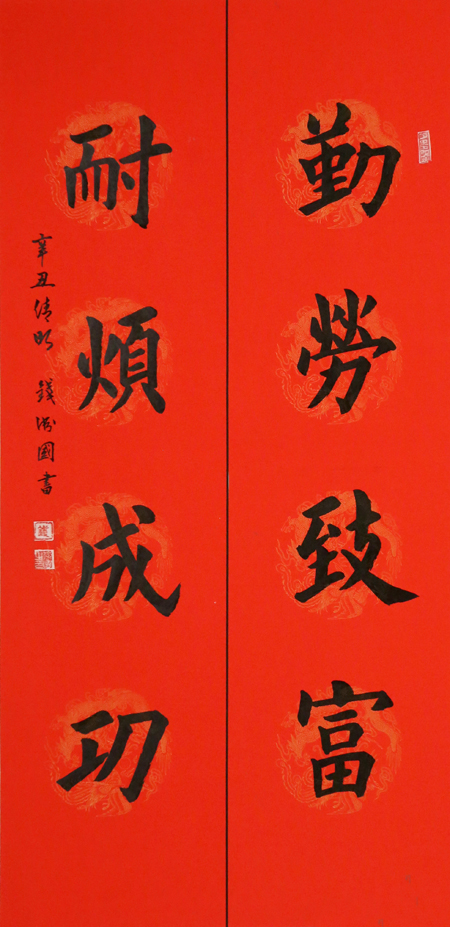 勤勞致富
耐煩成功
辛丑清明 錢國書